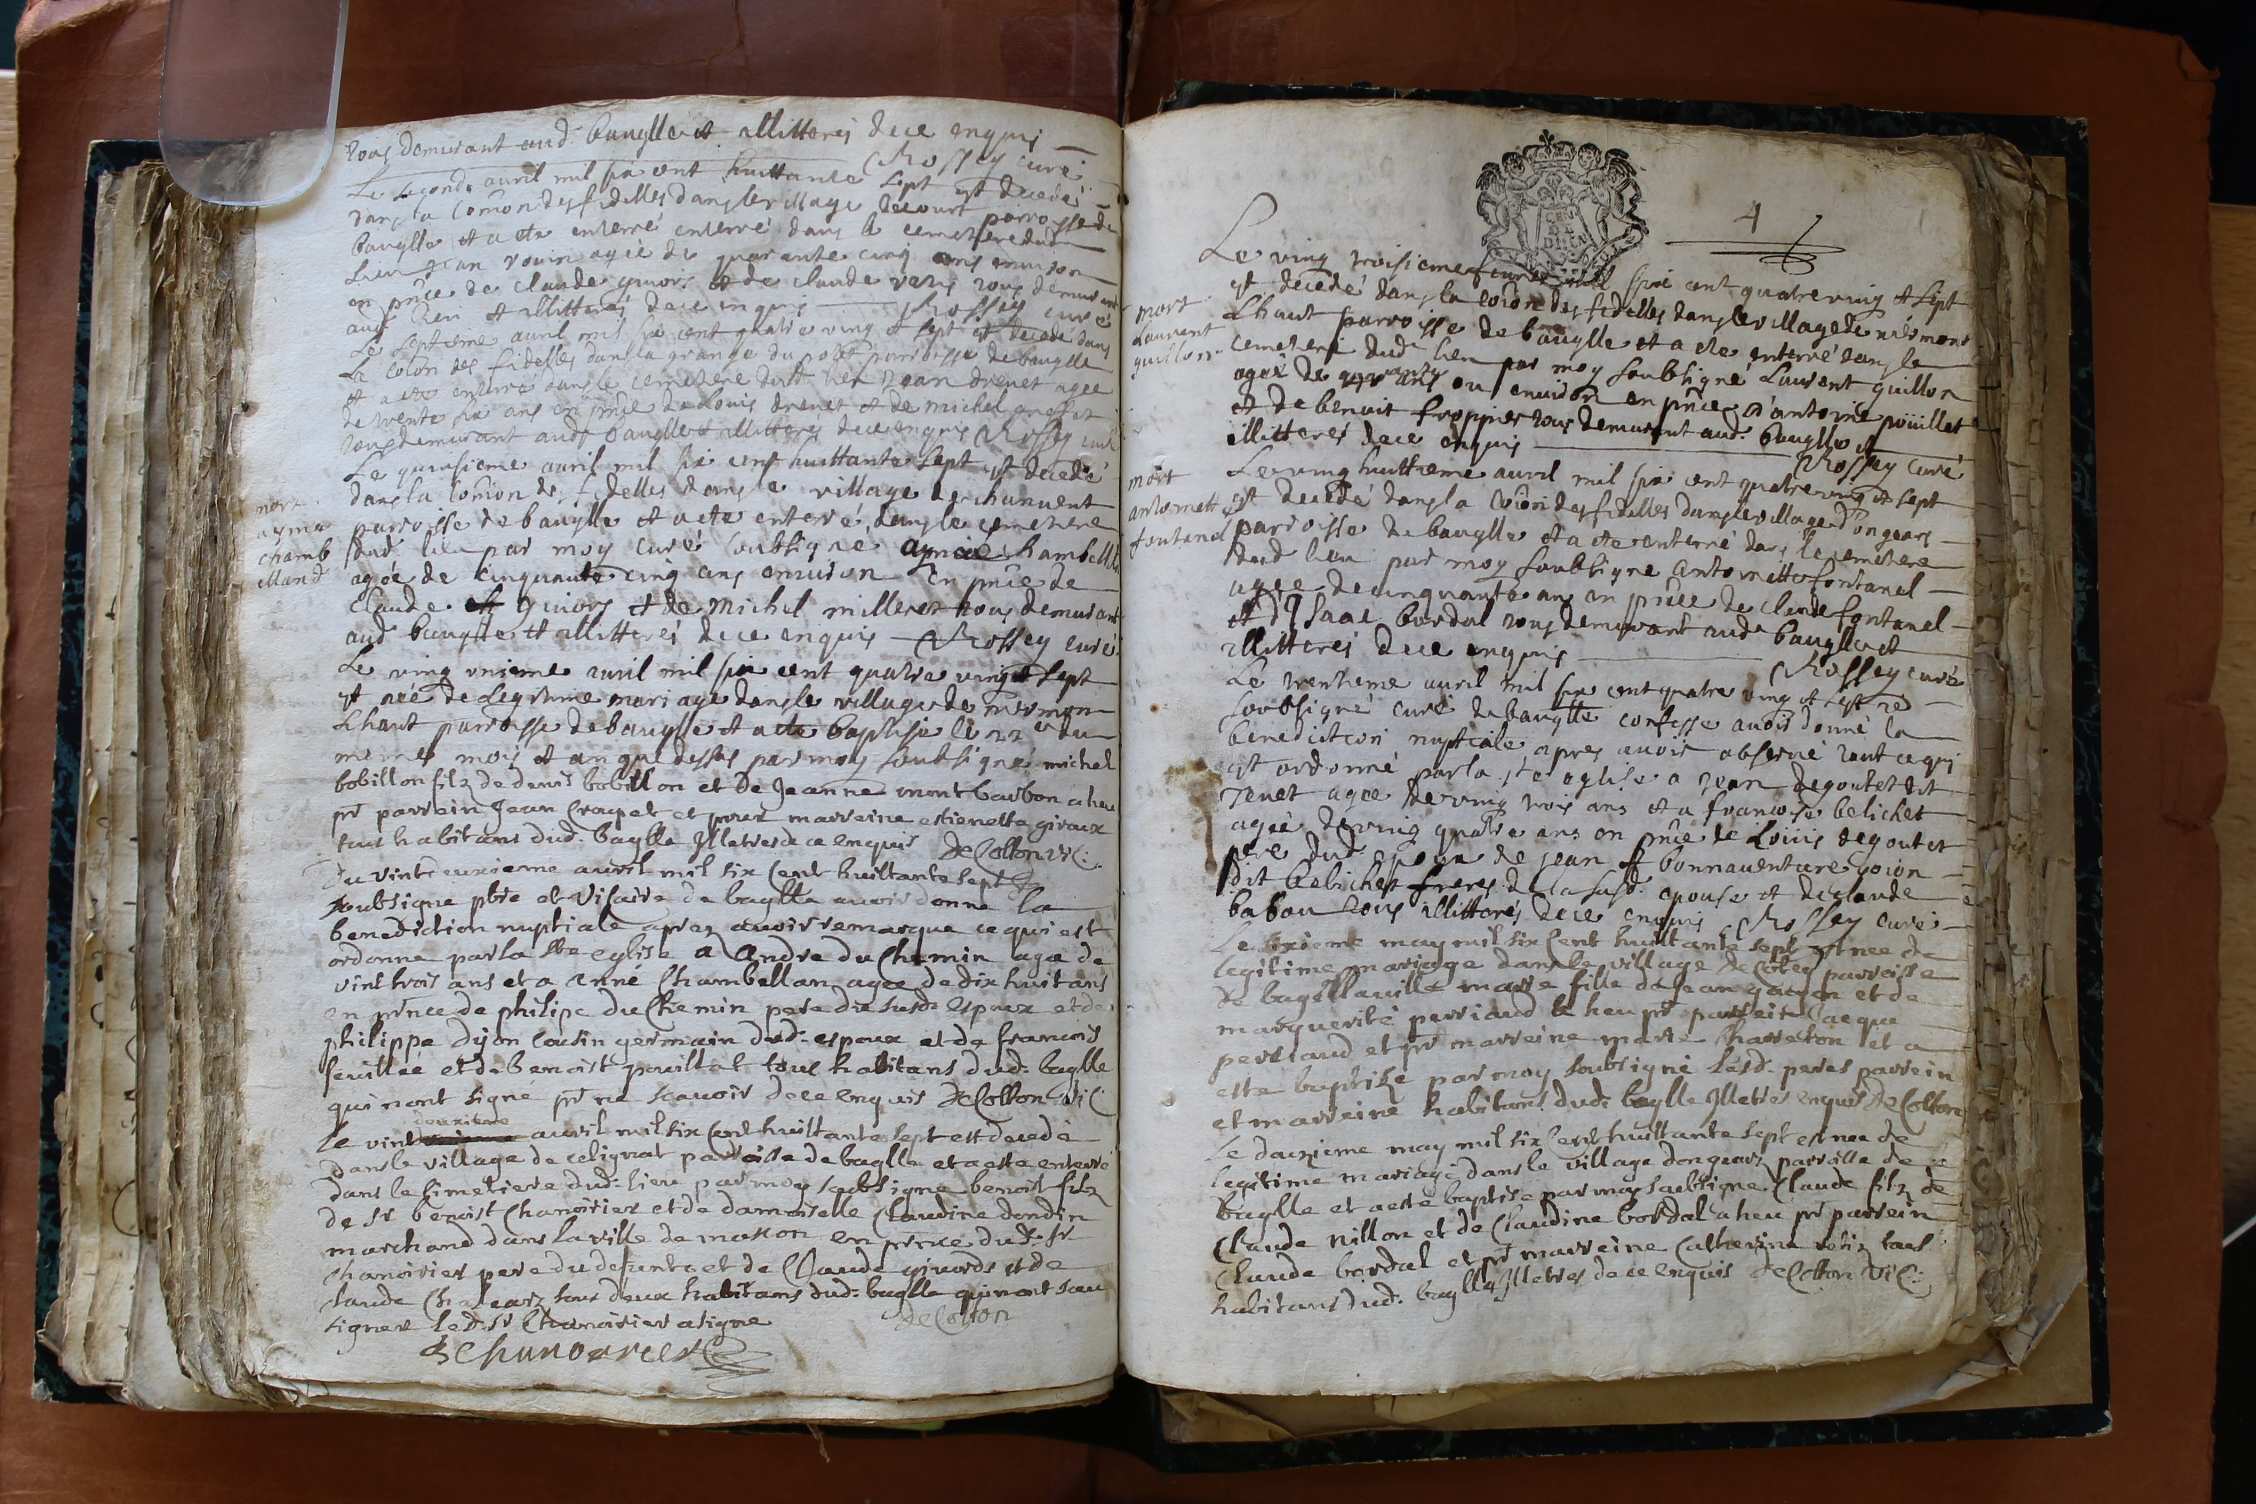 tous demurant aud. bauglle et illitterés de ce enquis
Rossey curé
Le second avril mil six cent huittante sept est decedés
dans la comion des fidelles dans le village parroisse de
bauglle et a ete enterré enterré dans le cemetiere dud
Lieu agée de quarante cinq ans environ
en pnce de claude guiors et de claude tous demurant
aud lieu et illitterés de ce enquis Rossey curé
Le septieme avril mil six cent quatre ving et sept est decedé dans
la coion des fidelles dans la grange du parroisse de bauglle
et a ete enterré dans le cemetiere dud. lieu Jean drevet agee
de trente six ans en pnce de Louis drevet et de michel
tous demurant aud baugllet illitterés de ce enquis Rossey curé
mort
ayme
chamb
elland
Le quinsieme avril mil six cent huittante sept est decedé
dans la comion des fidelles dans le village de chanvent
parroisse de bauglle et a ete enterré dans le cemetiere
dud. lieu par moy curé soubsigne aymée
agée de cinquante cinq ans environ en pnce de
claude guiors et de michel milleret tous demurant
aud bauglle et illitterés de ce enquis Rossey curé
Le ving unieme avril mil six cent quatre ving et sept
est née de legitime mariage dans le village de mirmon
Lhaut parroisse de baugllet et a ete baptisse le 22e du
mesmes mois et an que dessus par moy soubsigné michel
bobillon filz de denis bobillon et de Jeanne mont barbon a heu
pr parrein Jean Croupet et pour marreine estienette giraux
tous habitans dud. baglle Illetres de ce enquis de Cotton vic:
Du vintdeuxieme avril mil six cent huittante sept Je
soubsigne pbre et Vicaire de baglle avoir donne la
benediction nuptiale apres avoir remarque ce qui est
ordonne par la ste eglise a Andre du Chemin age de
vint trois ans et a Anné Chambellan agee de dix huit ans
en pnce de philipe du Chemin pere du susd. espoux et de
philippe dijon cousin germain dud. espoux et de francois
feuillée et de benoist pouillat tous habitans dud. baglle
qui nont signé pr ne scavoir de ce enquis de Cotton vic:
deuxieme
Le vint avril mil six Cent huittante sept est decedé
dans le village de celignat parroisse de baglle et a este enterré
dans le Cimetiere dud. lieu par moy soubsigne benoist filz
de sr benoist Chanorier et de damoiselle Claudine dondin
marchand dans la ville de mascon en pnce dud. sr
chanorier pere du defunt et de Claude girords et de
Claude tous deux habitans dud. baglle qui nont sceu
signer led. sr Chanorier a signe de Cotton
B Chanorier
4
mort
Laurent
guillon
Le ving troisieme mil six cent quatre ving et sept
est decedé dans la coion des fidelles dans le village de mirmont
Lhaut parroisse de bauglle et a ete enterré dans le
cemetiere dud. lieu par moy soubsigné Laurent guillon
agée de ans ou environ en pnce d'antoine pouillet
et de benoit froppier tous demurant aud. baugllet
illitterés de ce enquis Rossey curé
mort
antoinette
fontanel
Le ving huittieme avril mil six cent quatre ving et sept
est decedé dans la coion des fidelles dans le village dongears
parroisse de baugllet et a ete enterré dans le cemetiere
dud lieu par moy soubsigne antoinette fontanel
agée de cinquante ans en pnce de claude fontanel
et d'Isaac bordal tous demurant aud. baugllet
illitterés de ce enquis Rossey curé
Le trentieme avril mil six cent quatre ving et sept je
soubsigné curé de baugllet confesse avoir donné la
benediction nuptiale apres avoir observé tout ce qui
est ordonné par la ste eglise a Jean degoutet dit
Jenet agée de ving trois ans et a francoise belichet
agée de ving quatre ans en pnce de Louis degoutet
pere dud. epoux de jean et bonnaventure goion
dit belichet freres de la susd. epouse et de claude
babou tous illitterés de ce enquis Rossey curé
Le sixieme may mil six Cent huittante sept est nee de
legitime mariage dans le village de Cotey parroisse
de bagellaville marie fille de Jean et de
marguerite perriaud a heu pr parrein Jacque
perriaud et pr marreine marie Charreton et a
este baptisee par moy soubsigné lesd. peres parrein
et marreine habitans dud. baglle Illetres enquis de Cotton
Le douzieme may mil six Cent huittante sept est nee de
legitime mariage dans le village dongears parroisse de
baglle et a este baptisé par moy soubsigne Claude filz de
Claude nillon et de Claudine bordal a heu pr parrein
Claude bordal et pr marreine Catherine tous
habitans dud. baglle Illetres de ce enquis de Cotton vic: